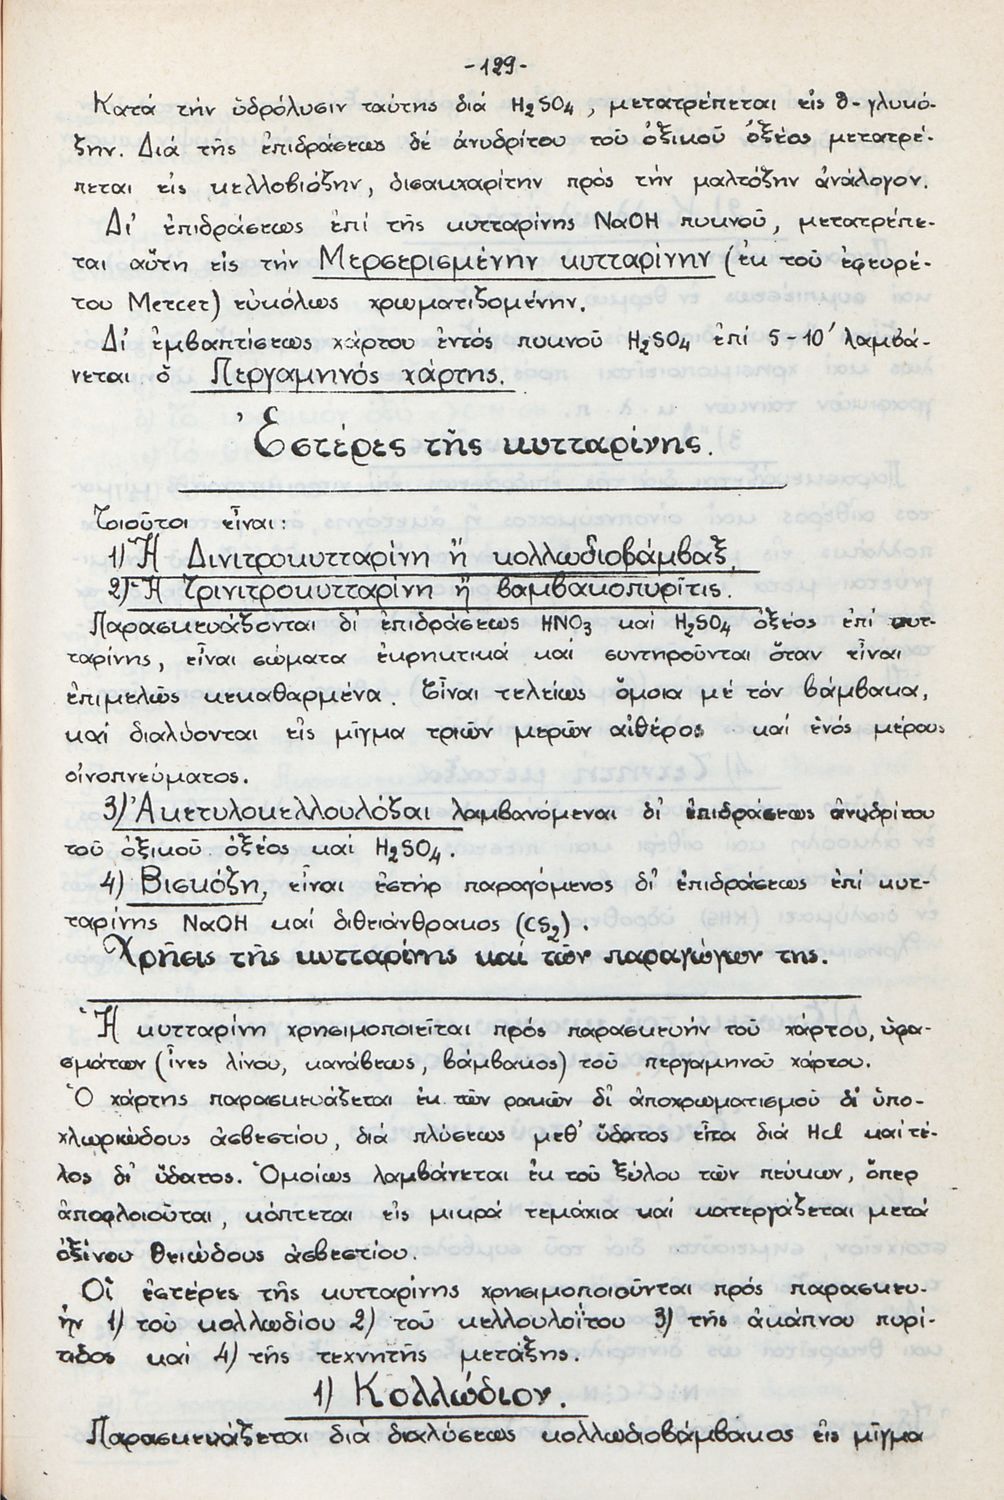 -129-
Κατά τήν ὑδρόλυσιν ταύτης διά H₂SO₄, μετατρέπεται εἰς δ-γλυκό-
ζην. Διά τῆς ἐπιδράσεως δέ ἀνυδρίτου τοῦ ὀξικοῦ ὀξέος μετατρέ-
πεται εἰς κελλοβιόζην, δισακχαρίτην πρός τήν μαλτόζην ἀνάλογον.
Δι' ἐπιδράσεως ἐπί τῆς κυτταρίνης NaOH πυκνοῦ, μετατρέπε-
ται αὕτη εἰς τήν Μερσερισμένην κυτταρίνην (ἐκ τοῦ ἐφευρέ-
του Mercer) εὐκόλως χρωματιζομένην.
Δι' ἐμβαπτίσεως χάρτου ἐντός πυκνοῦ H₂SO₄ ἐπί 5-10' λαμβά-
νεται ὁ Περγαμηνός χάρτης.
Ἐστέρες τῆς κυτταρίνης.
Τοιοῦτοι εἶναι:
1) Ἡ Δινιτροκυτταρίνη ἤ κολλωδιοβάμβαξ,
2) Ἡ Τρινιτροκυτταρίνη ἤ βαμβακοπυρῖτις.
Παρασκευάζονται δι' ἐπιδράσεως HNO₃ καί H₂SO₄ ὀξέος ἐπί κυτ-
ταρίνης, εἶναι σώματα ἐκρηκτικά καί συντηροῦνται ὅταν εἶναι
ἐπιμελῶς κεκαθαρμένα. Εἶναι τελείως ὅμοια μέ τόν βάμβακα,
καί διαλύονται εἰς μῖγμα τριῶν μερῶν αἰθέρος καί ἑνός μέρους
οἰνοπνεύματος.
3) Ἀκετυλοκελλουλόζαι λαμβανόμεναι δι' ἐπιδράσεως ἀνυδρίτου
τοῦ ὀξικοῦ ὀξέος καί H₂SO₄.
4) Βισκόζη, εἶναι ἐστήρ παραγόμενος δι' ἐπιδράσεως ἐπί κυτ-
ταρίνης NaOH καί διθειάνθρακος (CS₂).
Χρῆσις τῆς κυτταρίνης καί τῶν παραγώγων της.
Ἡ κυτταρίνη χρησιμοποιεῖται πρός παρασκευήν τοῦ χάρτου, ὑφα-
σμάτων (ἶνες λίνου, κανάβεως, βάμβακος) τοῦ περγαμηνοῦ χάρτου.
Ὁ χάρτης παρασκευάζεται ἐκ τῶν ρακῶν δι' ἀποχρωματισμοῦ δι' ὑπο-
χλωριώδους ἀσβεστίου, διά πλύσεως μεθ' ὕδατος εἶτα διά Hcl καί τέ-
λος δι' ὕδατος. Ὁμοίως λαμβάνεται ἐκ τοῦ ξύλου τῶν πεύκων, ὅπερ
ἀποφλοιοῦται, κόπτεται εἰς μικρά τεμάχια καί κατεργάζεται μετά
ὀξίνου θειώδους ἀσβεστίου.
Οἱ ἐστέρες τῆς κυτταρίνης χρησιμοποιοῦνται πρός παρασκευ-
ήν 1) τοῦ κολλωδίου 2) τοῦ κελλουλοΐτου 3) τῆς ἀκάπνου πυρί-
τιδος καί 4) τῆς τεχνητῆς μετάξης.
1) Κολλώδιον.
Παρασκευάζεται διά διαλύσεως κολλωδιοβάμβακος εἰς μῖγμα